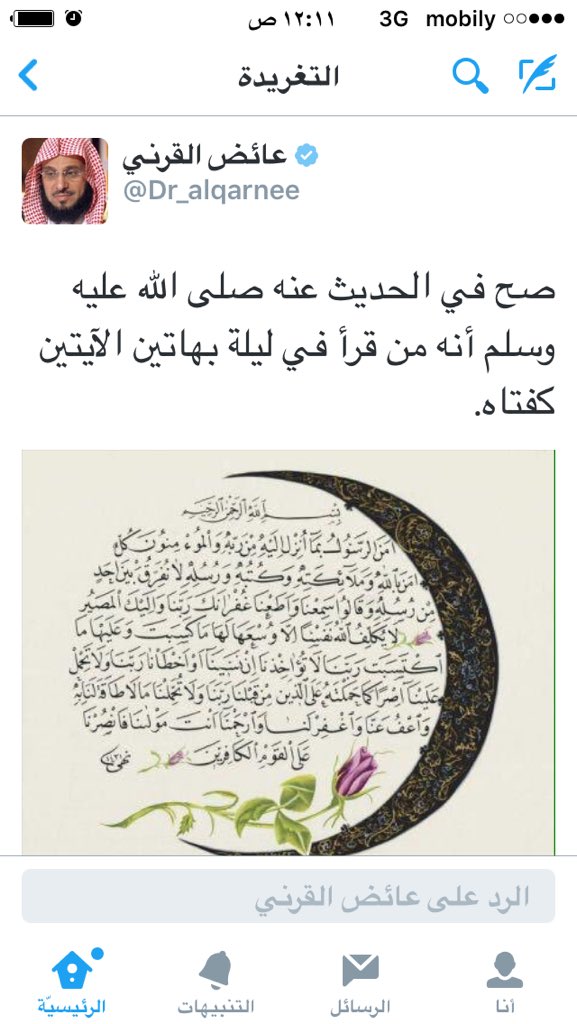 mobily 3G ١٢:١١ ص
التغريدة
عائض القرني
@Dr_alqarnee
صح في الحديث عنه صلى الله عليه
وسلم أنه من قرأ في ليلة بهاتين الآيتين
كفتاه.
بسم الله الرحمن الرحيم
امن الرسول بما أنزل اليه من ربه والمؤمنون كل
امن بالله وملائكته وكتبه ورسله لا نفرق بين احد
من رسله وقالوا سمعنا واطعنا غفرانك ربنا واليك المصير
لا يكلف الله نفسا الا وسعها لها ما كسبت وعليها ما
اكتسبت ربنا لا تؤاخذنا ان نسينا أو اخطانا ربنا ولا تحمل
علينا اصرا كما حملته على الذين من قبلنا ربنا ولا تحملنا ما لا طاقة لنا به
واعف عنا واغفر لنا وارحمنا انت مولينا فانصرنا
على القوم الكافرين
الرد على عائض القرني
أنا
الرسائل
التنبيهات
الرئيسيّة